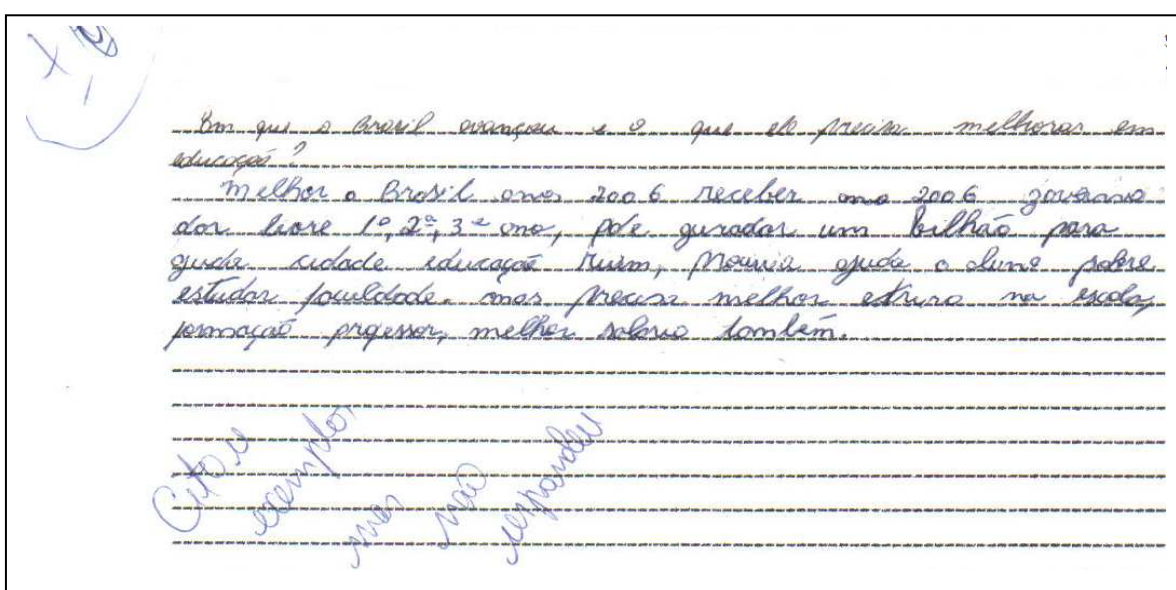 Em que o Brasil avançou e o que ele precisa melhorar em
educação?
Melhor o Brasil anos 2006 receber ano 2006 governa
dor livre 1º, 2ª, 3ª ano, pde guradar um bilhão para
ajuda cidade educação ruim, Prounia ajuda o aluno pobre
estudar faculdade. mas precisa melhor na escola,
formação professor, melhor salario também.
Citou
exemplos
mas
não
respondeu